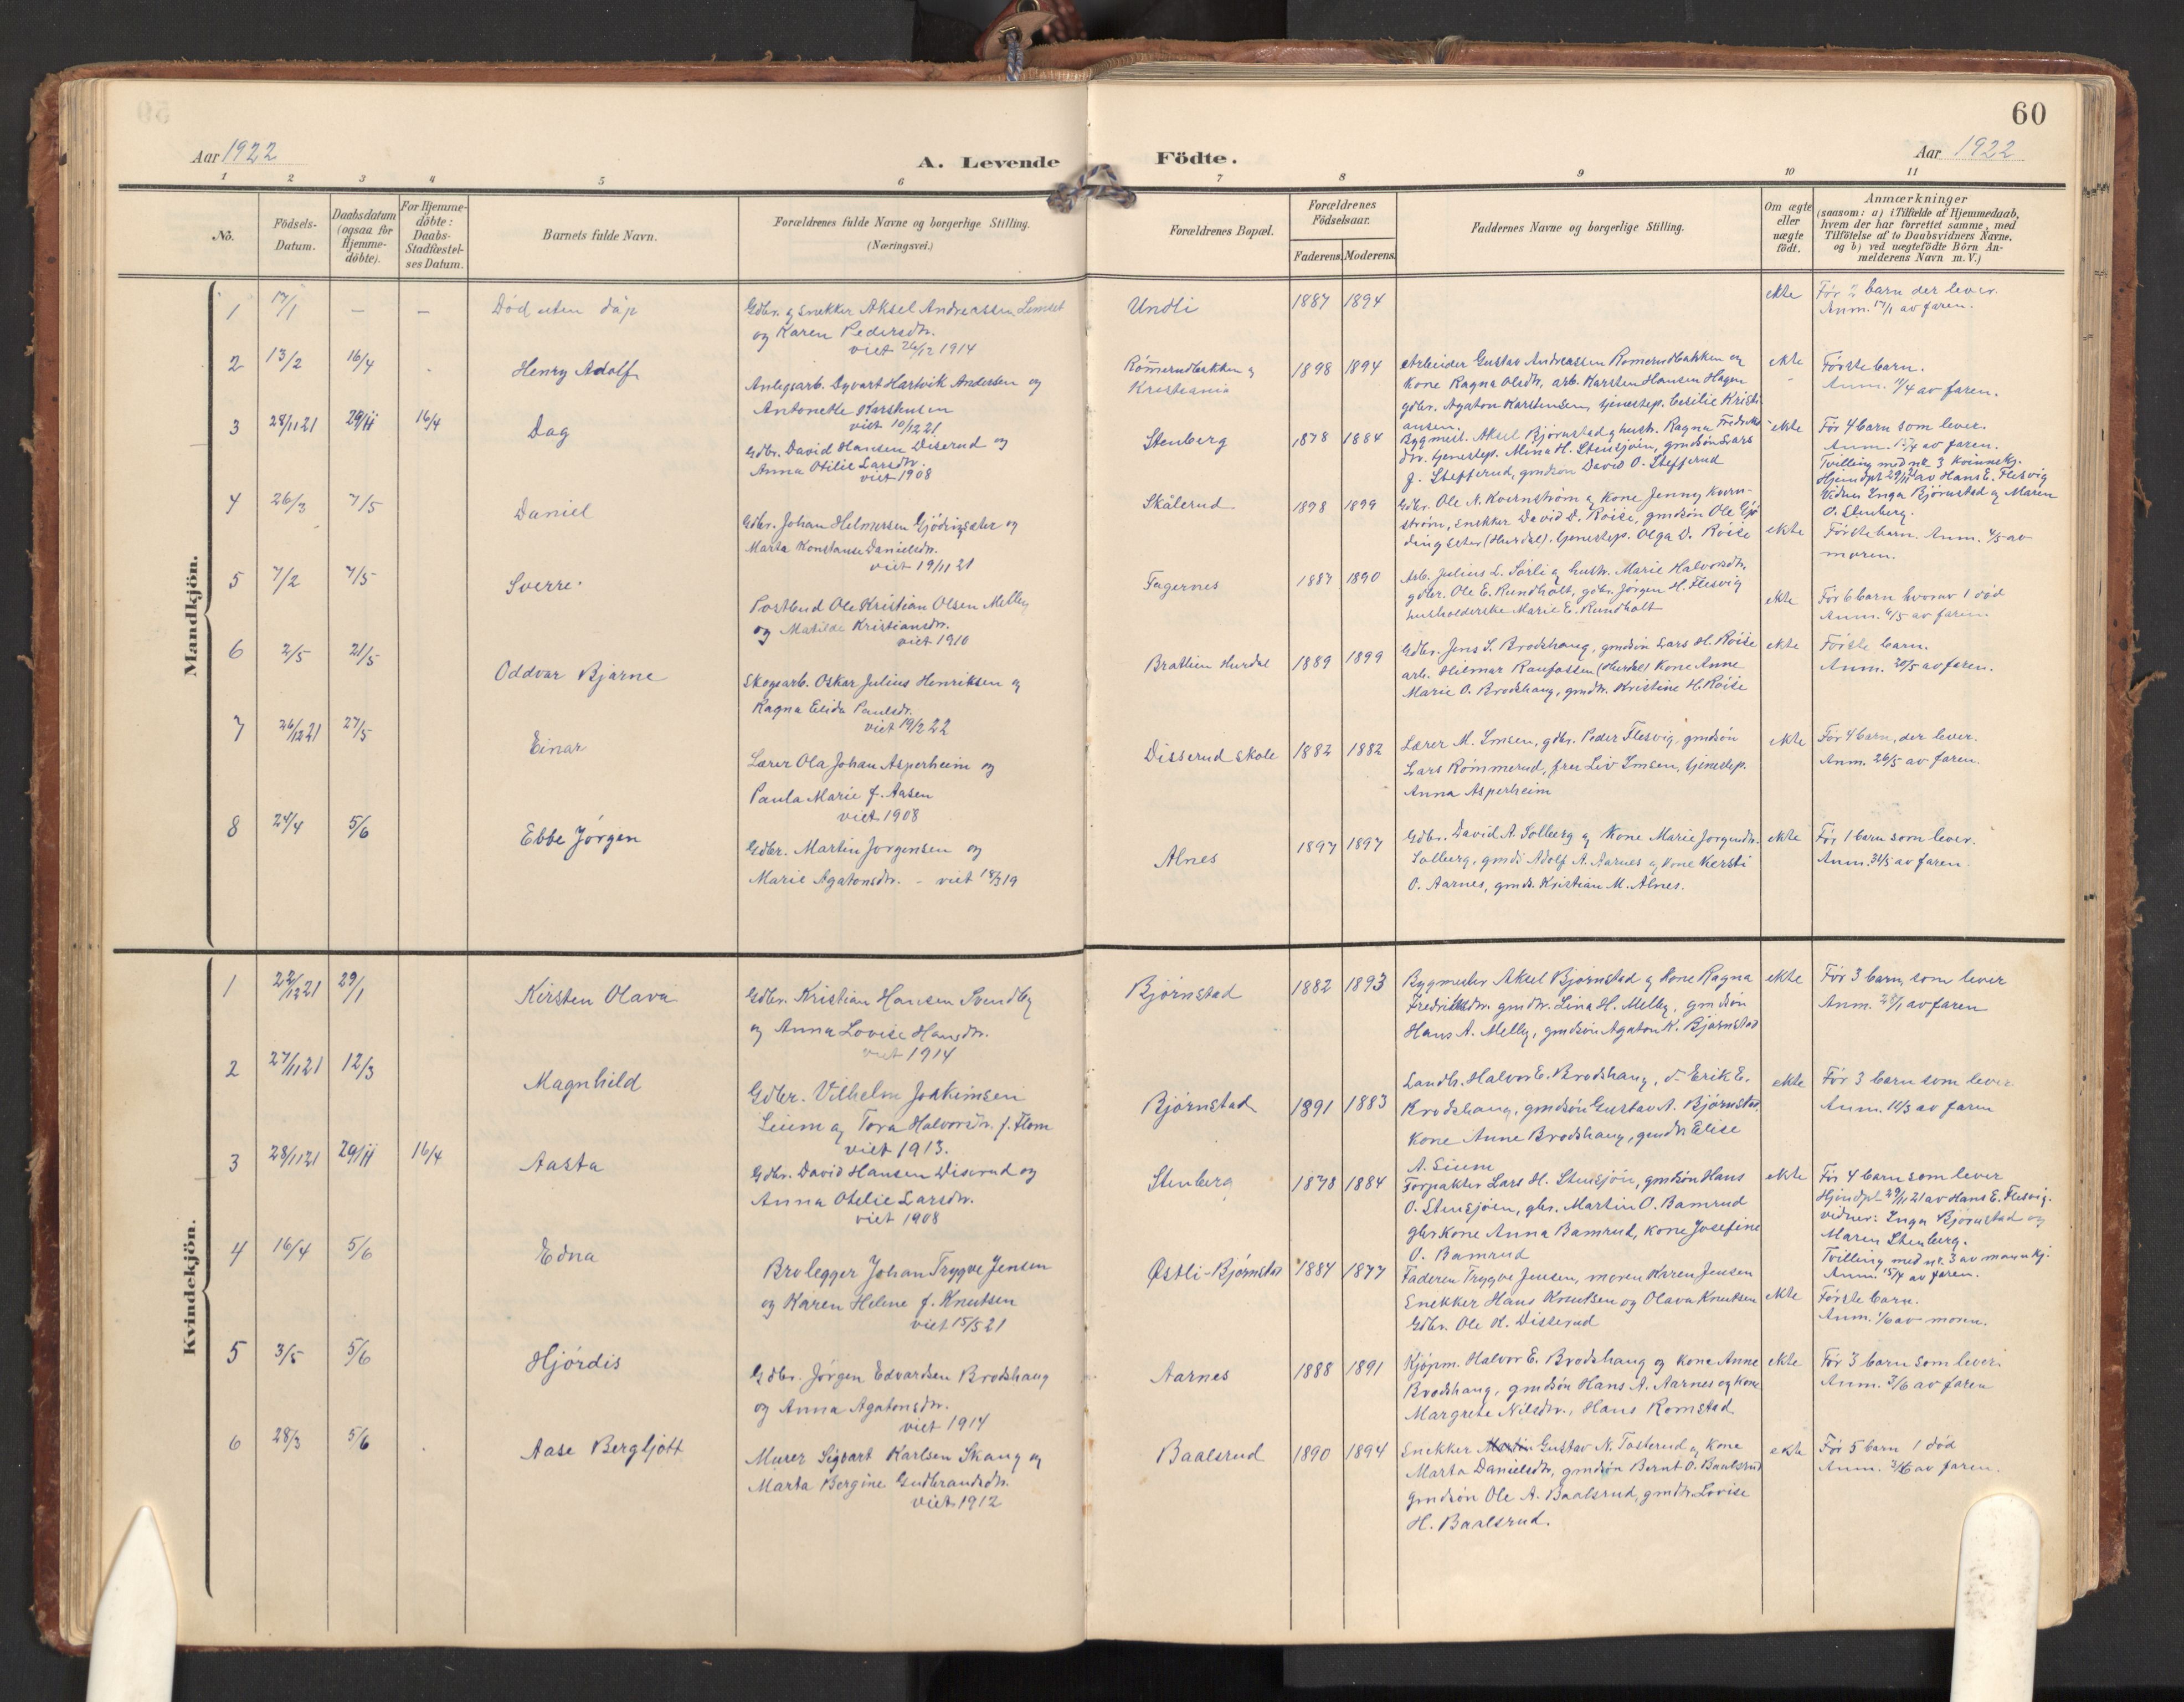 60
Aar 1922
A. Levende
Födte.
Aar 1922
1 2 3 4 5 6 7 8 9 10 11
No.
Födsels-
Datum.
Daabsdatum
(ogsaa for
Hjemme-
döbte).
For Hjemme-
döbte:
Daabs-
Stadfæstel-
ses Datum.
Barnets fulde Navn.
Forældrenes fulde Navne og borgerlige Stilling.
(Næringsvei.)
Forældrenes Bopæl.
Forældrenes
Födselsaar.
Faderens. Moderens.
Faddernes Navne og borgerlige Stilling.
Om ægte
eller
uægte
födt.
Anmærkninger
(saasom: a) i Tilfælde af Hjemmedaab,
hvem der har forrettet samme, med
Tilföielse af to Daabsvidners Navne,
og b) ved uægtefödte Börn An-
melderens Navn m. V.)
Mandkjön.
1 17/1 — — Död uten dåp
Gdbr. og snekker Aksel Andreassen Limset
og Karen Pedersdtr.
viet 26/12 1914
Undli 1887 1894
ekte
Før 2 barn der lever.
Anm. 17/1 av faren.
2 13/2 16/4 Henry Adolf
Anlegsarb. Syvert Hartvik Andersen og
Antonette Karstensen
viet 10/12 21
Rømerudbakken og
Kristiania
1898 1894
Arbeider Gustav Andreassen Romerudbakken og
kone Ragna Olsdtr, arb. Karsten Hansen Hagen
gdbr. Agaton Karstensen, tjenestep. Cecilie Kristi-
ansen.
ekte
Første barn.
Anm. 11/4 av faren.
3 28/11 21 29/11 16/4 Dag
Gdbr. David Hansen Diserud og
Anna Otilie Larsdtr.
viet 1908
Stenberg 1878 1884
Bygmest. Aksel Bjørnstad og hustr. Ragna Fredriks-
dtr. tjenestep. Mina H. Stensjøen, gmdsøn Lars
J. Stefferud, gmdsøn David O. Stefferud
ekte
Før 4 barn som lever.
Anm. 15/4 av faren.
Tvilling med nr 3 kvinnekj.
Hjemdpt 29/11 21 av Hans E. Flesvig
Vidner Inga Bjørnstad og Maren
O. Stenberg.
4 26/3 7/5 Daniel
Gdbr. Johan Helmersen Gjödingseter og
Marta Konstanse Danielsdtr.
viet 19/11 21
Skålerud 1898 1899
Gdbr. Ole N. Kvernstrøm og kone Jenny Kvern-
strøm, snekker David D. Røise, gmdsøn Ole Gjö-
dingseter (Hurdal). tjenestep. Olga D. Røise
ekte
Første barn. Anm. 4/5 av
moren.
5 7/2 7/5 Sverre
Postbud Ole Kristian Olsen Melby
og Matilde Kristiansdtr.
viet 1910
Fagernes 1887 1890
Arb. Julius L. Sørli og hustr. Marie Halvorsdtr.
gdbr. Ole E. Rundholt, gdbr. Jørgen H. Flesvig
husholderske Marie E. Rundholt
ekte
Før 6 barn hvorav 1 död
Anm. 6/5 av faren.
6 2/5 21/5 Oddvar Bjarne
Skogsarb. Oskar Julius Henriksen og
Ragna Elida Paulsdr.
viet 19/2 22
Brattlien Hurdal 1889 1899
Gdbr. Jens L. Brodshaug, gmdsøn Lars H. Røise
arb. Hilmar Raufossen (Hurdal) Kone Anne
Marie O. Brodshaug, gmdtr. Kristine H. Røise
ekte
Første barn.
Anm. 20/5 av faren.
7 26/12 21 27/5 Einar
Lærer Ola Johan Asperheim og
Paula Marie f. Aasen
viet 1908
Disserud skole 1882 1882
Lærer M. Imsen, gdbr. Peder Flesvig, gmdsön
Lars Römmerud, fru Liv Imsen, tjenestep.
Anna Asperheim
ekte
Før 4 barn, der lever.
Anm. 26/5 av faren.
8 24/4 5/6 Ebbe Jørgen
Gdbr. Martin Jorgensen og
Marie Agatonsdtr. - viet 18/3 19
Alnes 1897 1897
Gdbr. David A. Solberg og Kone Marie Jorgensdtr.
Solberg, gmds Adolf A. Aarnes og kone Kersti
O. Aarnes, gmds. Kristian M. Alnes.
ekte
Før 1 barn som lever.
Anm. 31/5 av faren.
Kvindekjön.
1 22/12 21 29/1 Kirsten Olava
Gdbr. Kristian Hansen Svendby
og Anna Lovise Hansdtr.
viet 1914
Bjørnstad 1882 1893
Bygmester Aksel Bjørnstad og kone Ragna
Fredriksdtr. gmdtr. Lina H. Melby, gmdsøn
Hans A. Melby, gmdsøn Agaton K. Bjørnstad
ekte
Før 3 barn, som lever
Anm. 28/1 av faren
2 27/11 21 12/3 Magnhild
Gdbr. Vilhelm Joakimsen
Seium og Tora Halvorsdr. f. Flom
viet 1913.
Bjørnstad 1891 1883
Landh. Halvor E. Brodshaug, d. Erik E.
Brodshaug, gmdsøn Gustav A. Bjørnstad,
Kone Anne Brodshaug, gmdtr Elise
A. Seium
ekte
Før 3 barn som lever
Anm. 11/3 av faren
3 28/11 21 29/11 16/4 Aasta
Gdbr. David Hansen Diserud og
Anna Otelie Larsdtr.
viet 1908
Stenberg 1878 1884
Forpakter Lars H. Stensjøen, gmdsøn Hans
O. Stensjøen, gbr. Martin O. Bamrud
gbrkone Anna Bamrud, kone Josefine
O. Bamrud
ekte
Før 4 barn som lever
Hjemdpt 29/11 21 av Hans E. Flesvig.
vidner: Inga Bjørnstad og
Maren Stenberg.
Tvilling med nr. 3 av mannkj.
Anm. 15/4 av faren.
4 16/4 5/6 Edna
Brolegger Johan Trygve Jensen
og Karen Helene f. Knutsen
viet 15/5 21
Østli-Bjørnstad 1884 1877
Faderen Trygve Jensen, moren Karen Jensen
Snekker Hans Knutsen og Olava Knutsen
Gdbr. Ole K. Disserud
ekte
Første barn.
Anm. 1/6 av moren.
5 3/5 5/6 Hjórdis
Gdbr. Jørgen Edvardsen Brodshaug
og Anna Agatonsdtr.
viet 1914
Aarnes 1888 1891
Kjøpm. Halvor E. Brodshaug og kone Anne
Brodshaug, gmdsön Hans A. Aarnes og kone
Margrete Nilsdtr., Hans Romstad
ekte
Før 3 barn som lever.
Anm. 3/6 av faren
6 28/3 5/6 Aase Bergljott
Murer Sigvart Karlsen Skaug og
Marta Bergine Gudbrandsdtr.
viet 1912
Baalsrud 1890 1894
Snekker Gustav N. Tosterud og Kone
Marta Danielsdtr, gmdsøn Bernt O. Baalsrud
gmdsøn Ole A. Baalsrud, gmdtr. Lovise
H. Baalsrud.
ekte
Før 5 barn 1 død
Anm. 3/6 av faren.